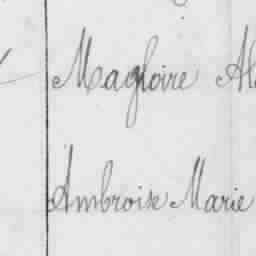 Magloire Al
Ambroise Marie